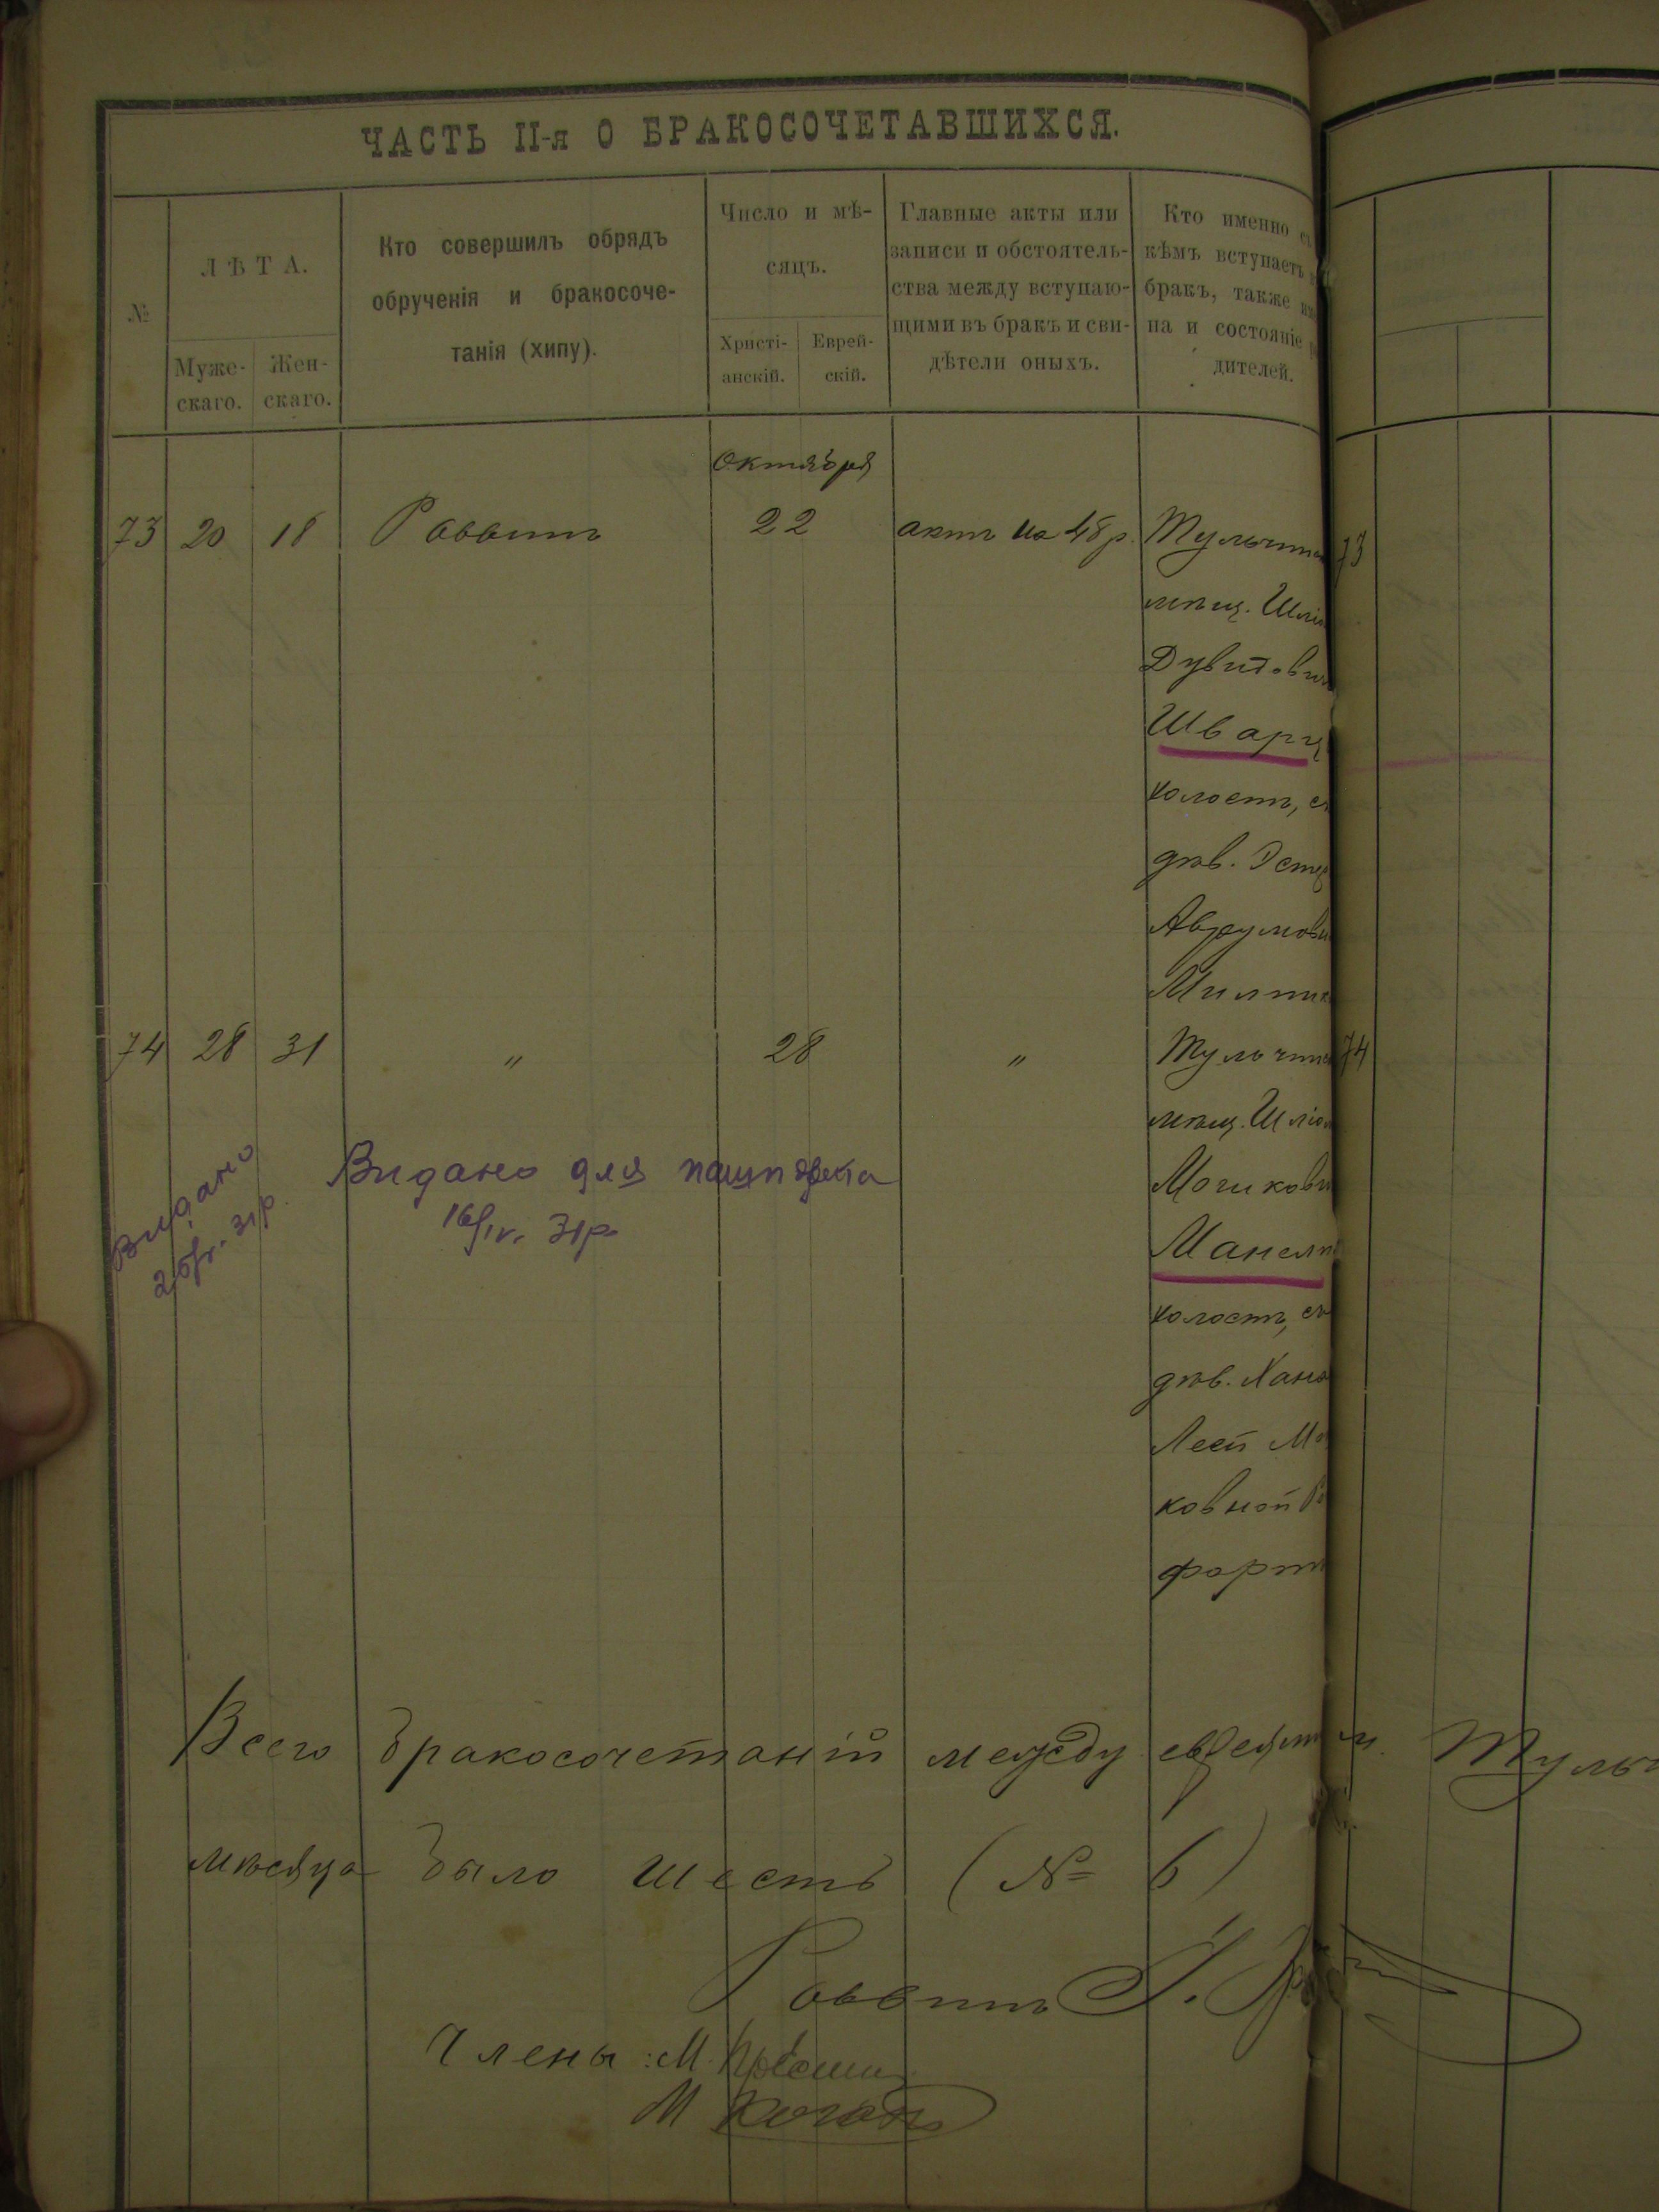 ЧАСТЬ II-я О БРАКОСОЧЕТАВШИХСЯ.
№
ЛѢТА.
Муже-
скаго.
Жен-
скаго.
Кто совершилъ обрядъ
обрученія и бракосоче-
танія (хипу).
Число и мѣ-
сяцъ.
Христі-
анскій.
Еврей-
скій.
Главные акты или
записи и обстоятель-
ства между вступаю-
щими въ бракъ и сви-
дѣтели оныхъ.
Кто именно съ
кѣмъ вступаетъ
бракъ, также
на и состояніе
дителей.
Октября
73 20 18 Раввинъ 22 актъ на 48 р. Тульчин 73
мѣщ. Шлio
Дувидович
Шварц
холостъ, съ
дѣв. Эстер
Аврумовн
Милник
74 28 31 " 28 " Тульчин 74
мѣщ. Шліом
Мошкови
Манелн
холостъ, съ
дѣв. Хана
Леей Мо
ковной
форт
Видано
25/V. 31 р.
Видано для пашпорта
16/IV. 31 р.
Всего бракосочетаній между евреями. Тульч
мѣсяца было шесть (№ 6)
Раввинъ
Члены: М.
М Коганъ